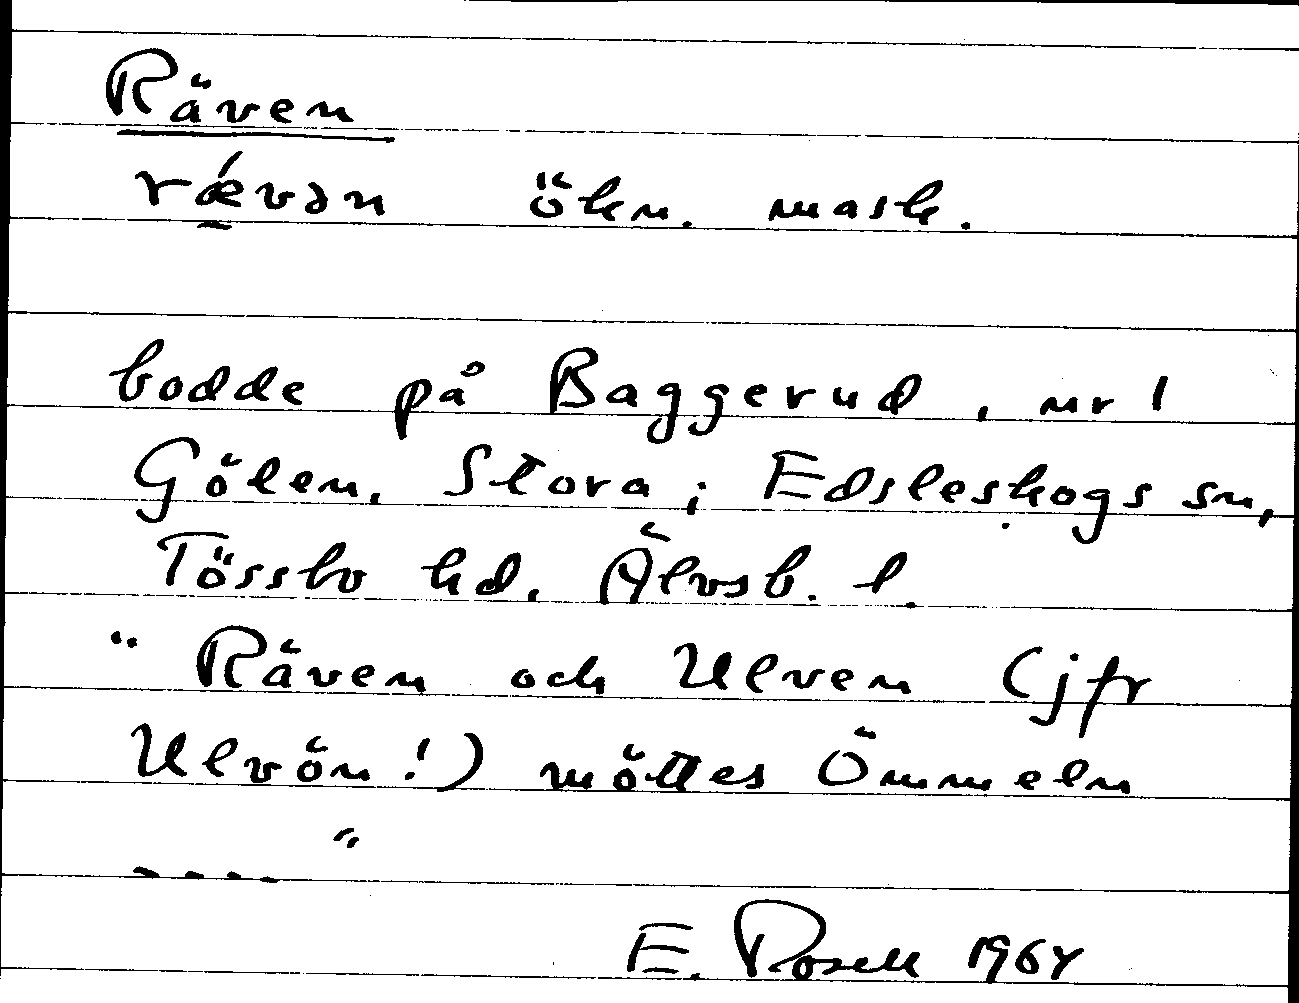 Räven
rǽvən ökn. mask.
bodde på Baggerud, nr 1
Gölen, Stora; Edsleskogs sn,
Tössbo hd. Älvsb. l.
"Räven och Ulven (jfr
Ulvön!) möttes Ömmeln
----"
E. Rosell 1964